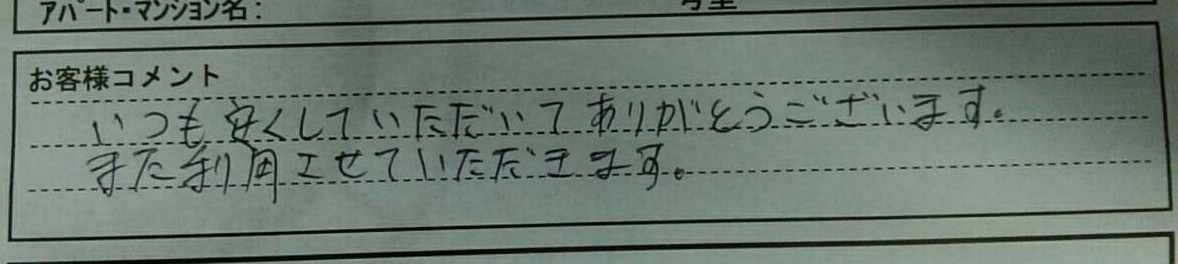 アパート・マンション名:
号室
お客様コメント
いつも安くしていただいてありがとうございます。
また利用させていただきます。